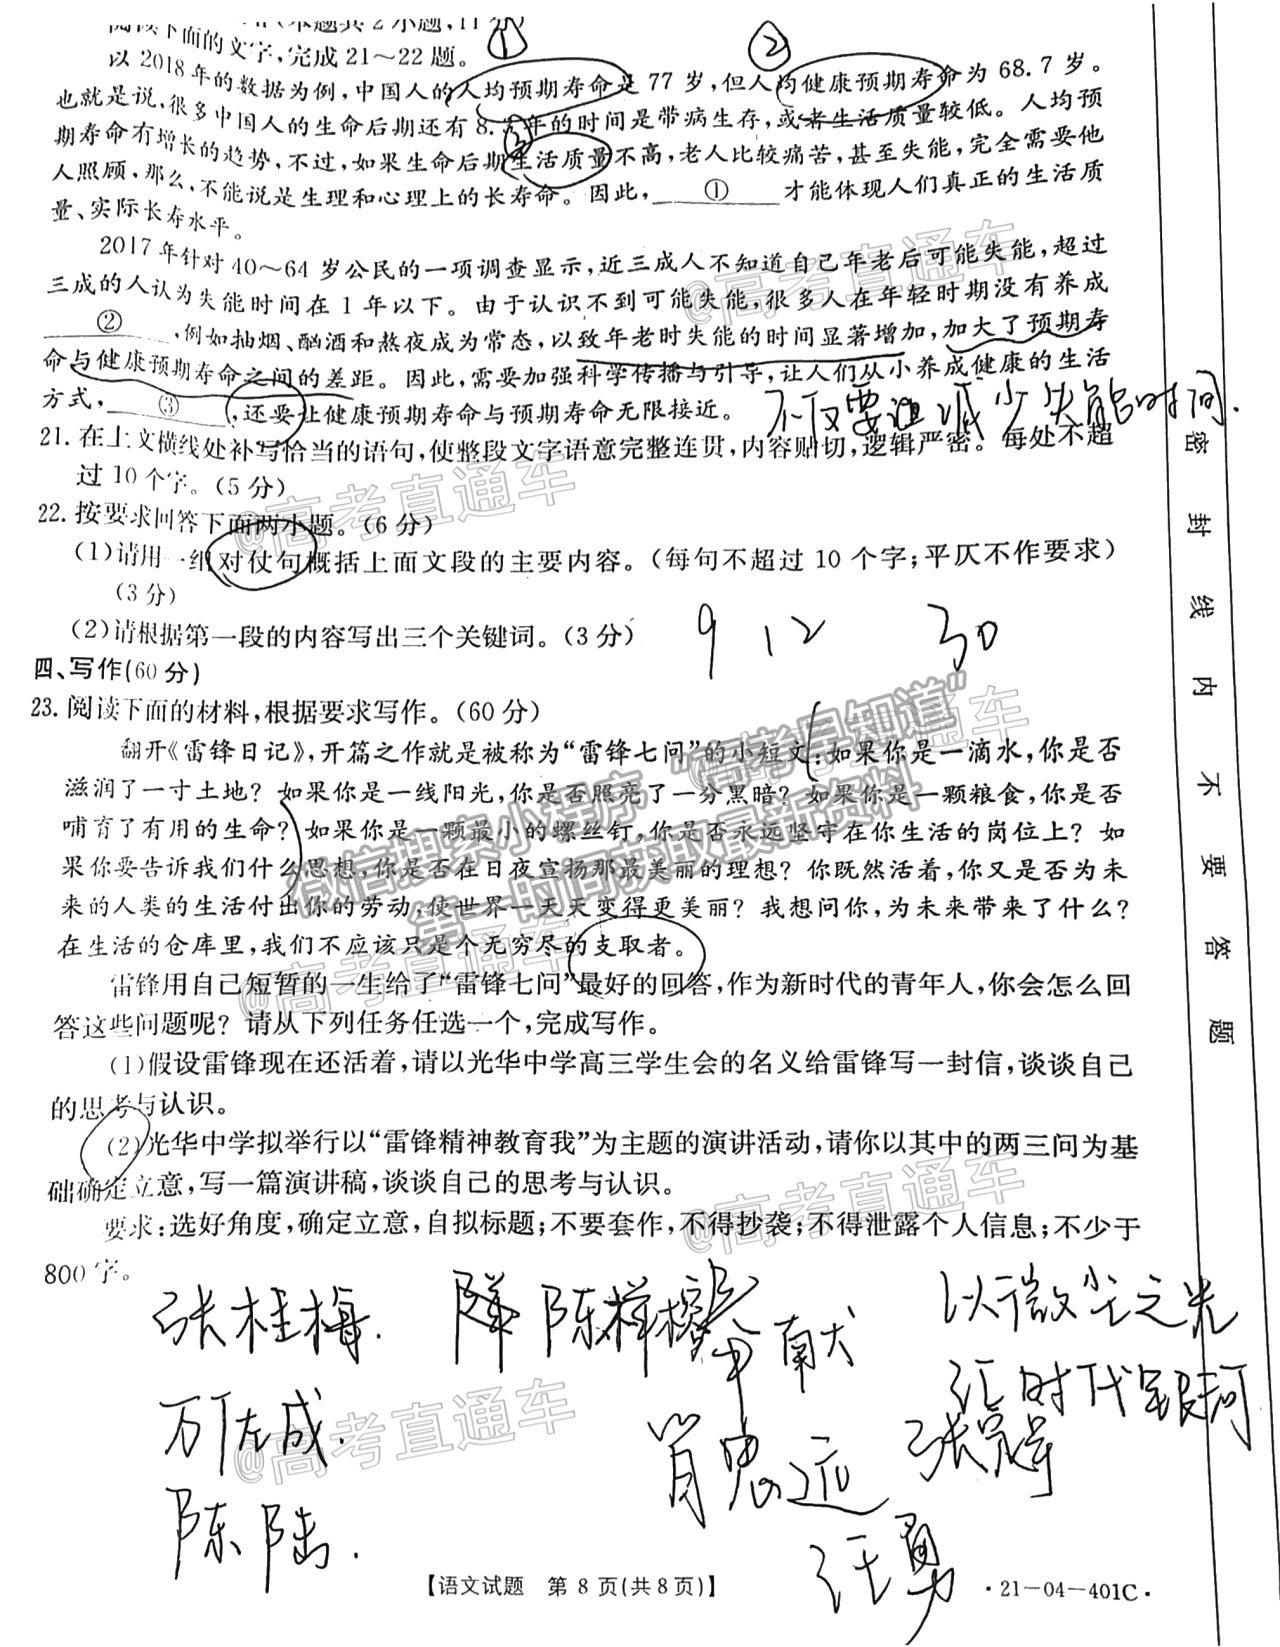 阅读下面的文字,完成21～22题。
① ②
以2018年的数据为例,中国人的人均预期寿命是77岁,但人均健康预期寿命为68.7岁。
也就是说,很多中国人的生命后期还有8.3年的时间是带病生存,或者生活质量较低。人均预
期寿命有增长的趋势,不过,如果生命后期生活质量不高,老人比较痛苦,甚至失能,完全需要他
人照顾,那么,不能说是生理和心理上的长寿命。因此,____①____才能体现人们真正的生活质
量、实际长寿水平。
2017年针对40～64岁公民的一项调查显示,近三成人不知道自己年老后可能失能,超过
三成的人认为失能时间在1年以下。由于认识不到可能失能,很多人在年轻时期没有养成
____②____,例如抽烟、酗酒和熬夜成为常态,以致年老时失能的时间显著增加,加大了预期寿
命与健康预期寿命之间的差距。因此,需要加强科学传播与引导,让人们从小养成健康的生活
方式,____③____,还要让健康预期寿命与预期寿命无限接近。
不仅要让减少失能时间.
21.在上文横线处补写恰当的语句,使整段文字语意完整连贯,内容贴切,逻辑严密。每处不超
过10个字。(5分)
22.按要求回答下面两小题。(6分)
(1)请用一组对仗句概括上面文段的主要内容。(每句不超过10个字;平仄不作要求)
(3分)
(2)请根据第一段的内容写出三个关键词。(3分)
9 12 30
四、写作(60分)
23.阅读下面的材料,根据要求写作。(60分)
翻开《雷锋日记》,开篇之作就是被称为“雷锋七问”的小短文:如果你是一滴水,你是否
滋润了一寸土地?如果你是一线阳光,你是否照亮了一分黑暗?如果你是一颗粮食,你是否
哺育了有用的生命?如果你是一颗最小的螺丝钉,你是否永远坚守在你生活的岗位上?如
果你要告诉我们什么思想,你是否在日夜宣扬那最美丽的理想?你既然活着,你又是否为未
来的人类的生活付出你的劳动,使世界一天天变得更美丽?我想问你,为未来带来了什么?
在生活的仓库里,我们不应该只是个无穷尽的支取者。
雷锋用自己短暂的一生给了“雷锋七问”最好的回答,作为新时代的青年人,你会怎么回
答这些问题呢?请从下列任务任选一个,完成写作。
(1)假设雷锋现在还活着,请以光华中学高三学生会的名义给雷锋写一封信,谈谈自己
的思考与认识。
(2)光华中学拟举行以“雷锋精神教育我”为主题的演讲活动,请你以其中的两三问为基
础确定立意,写一篇演讲稿,谈谈自己的思考与认识。
要求:选好角度,确定立意,自拟标题;不要套作,不得抄袭;不得泄露个人信息;不少于
800字。
张桂梅.
陈祥榕
以微尘之光
汇时代银河
万佐成.
肖思远
陈陆.
汪勇
【语文试题　第8页(共8页)】
·21-04-401C·
密封线内不要答题
@高考直通车
@高考直通车
@高考直通车
@高考直通车
@高考直通车
@高考直通车
微信搜索小程序“高考早知道”
第一时间获取最新资料